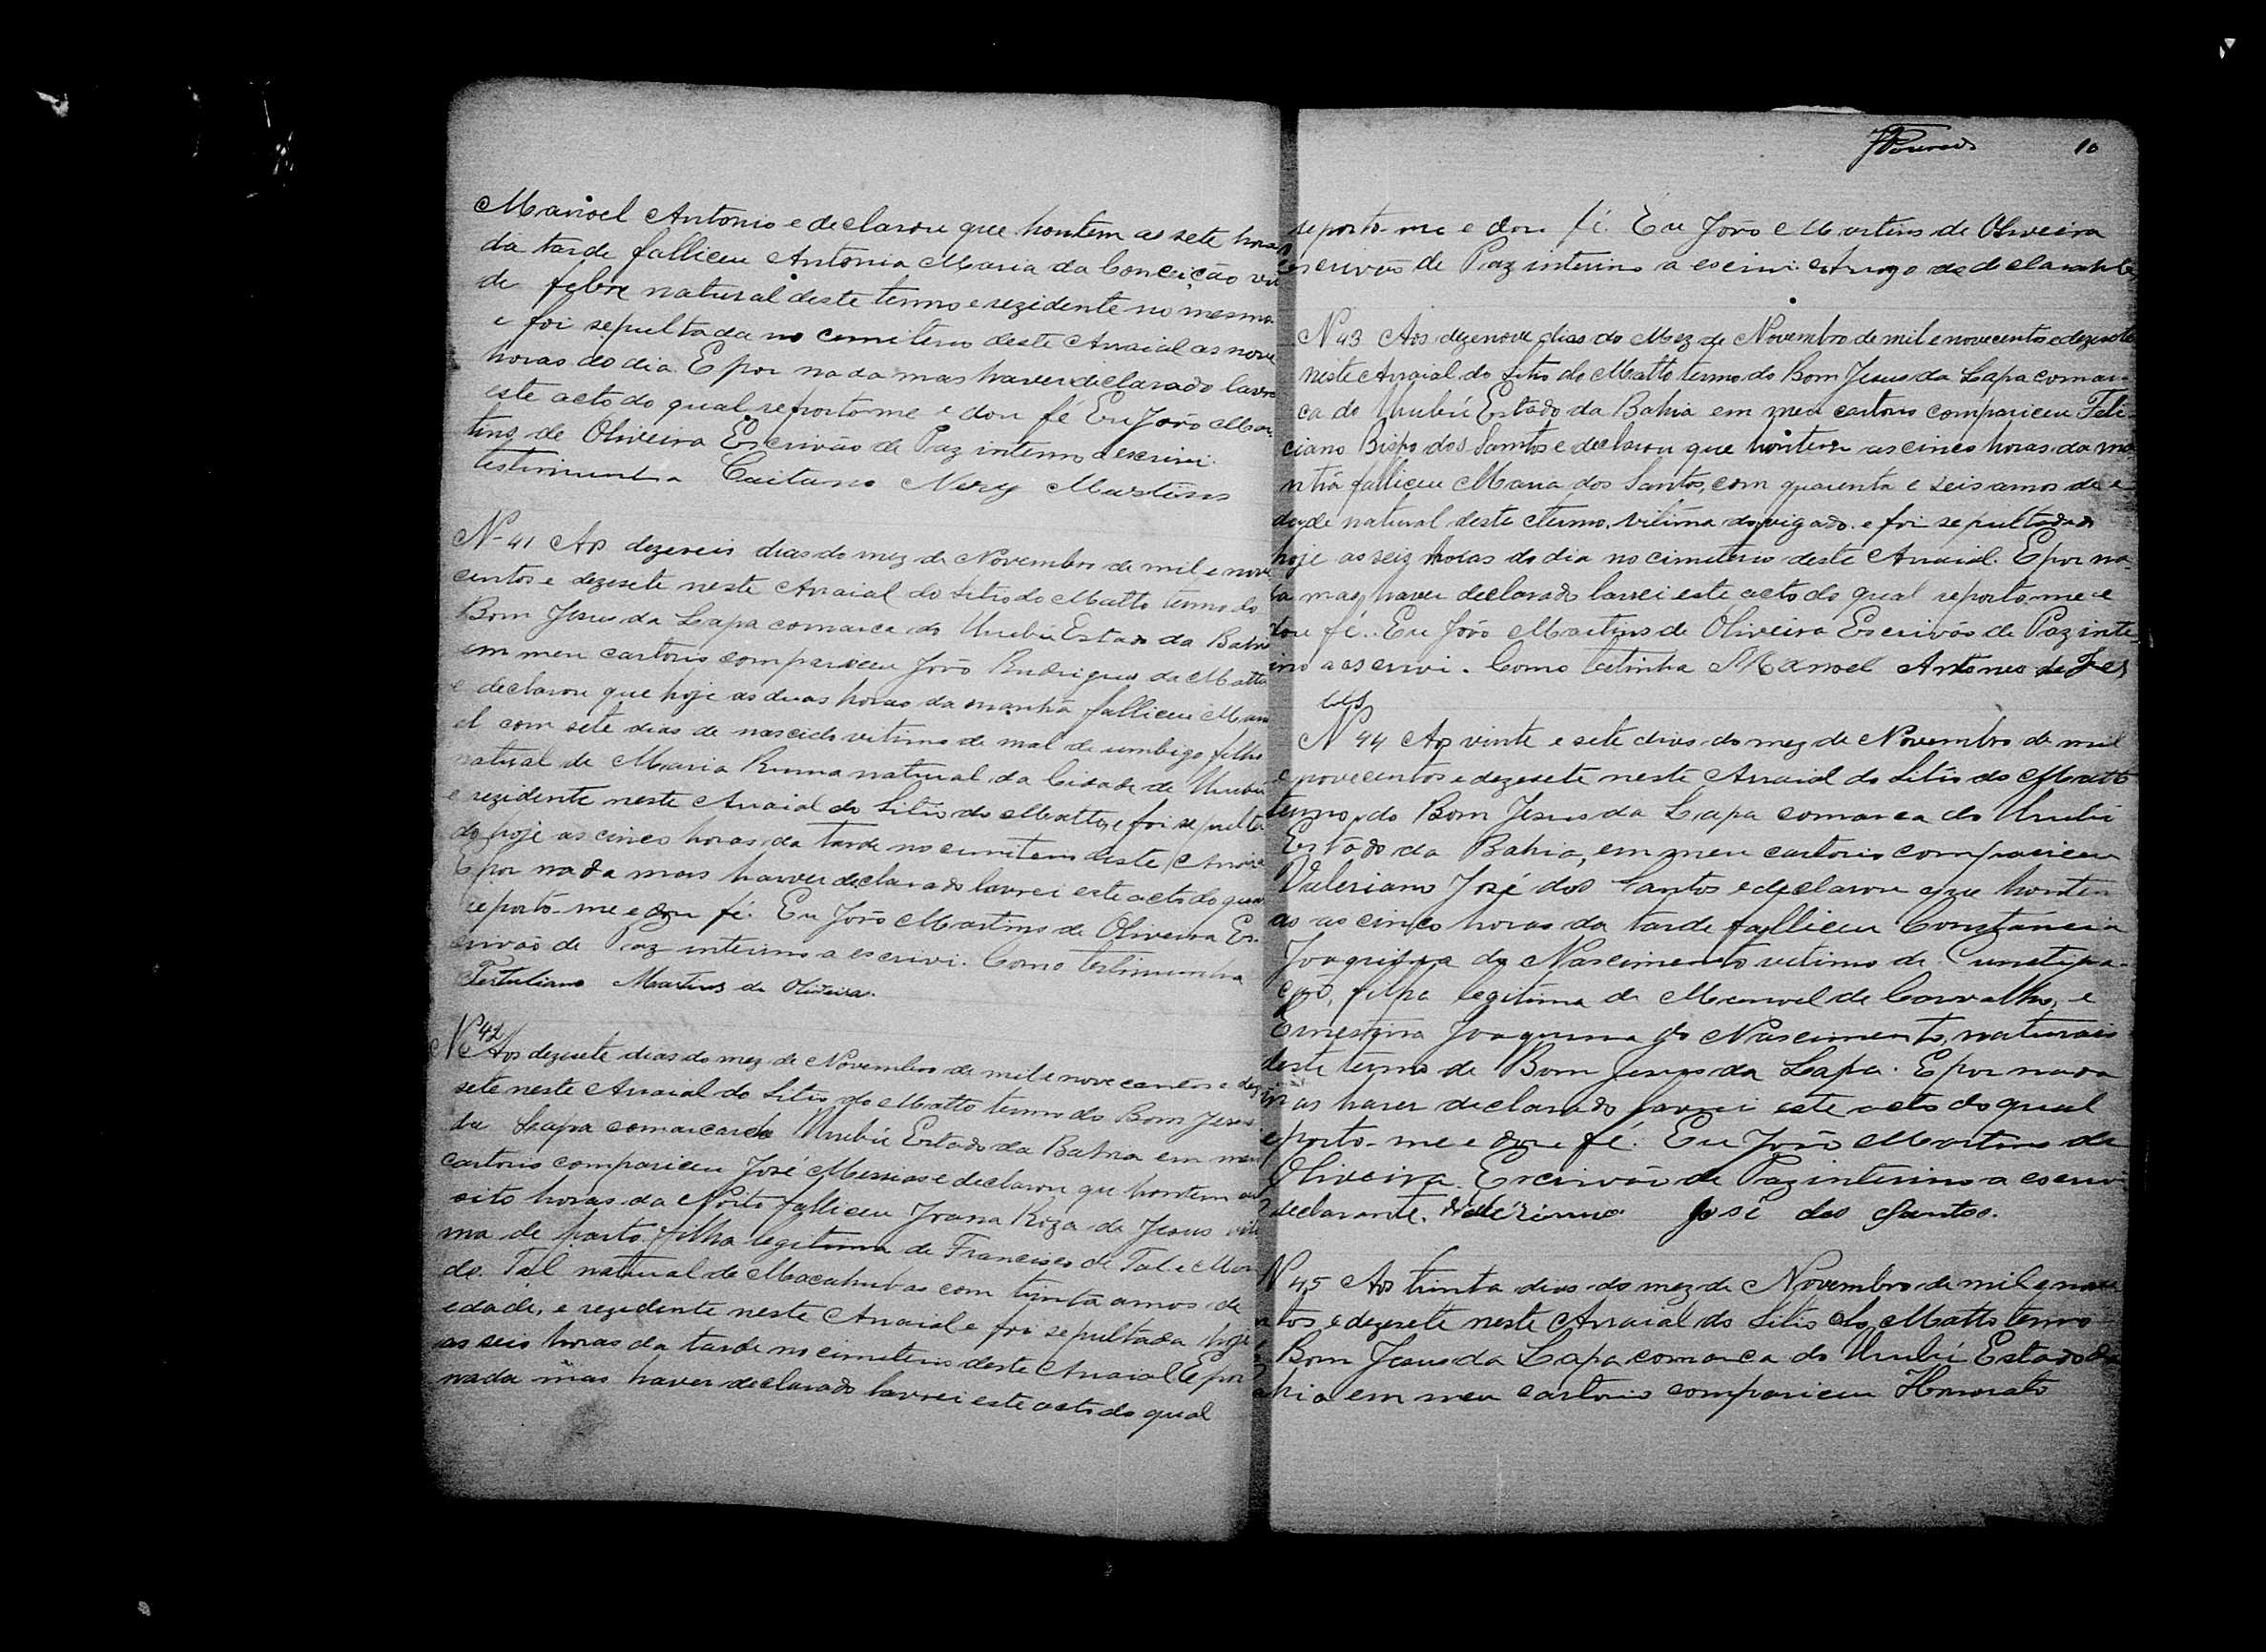 Manoel Antonio e declarou que hontem as sete horas
da tarde falliceu Antonia Maria da Conceição vi
de febre natural deste termo e rezidente no mesmo
e foi sepultada no cemiterio deste Arraial as nove
horas do dia E por nada mas haver declarado lavrei
este acto do qual reporto-me e dou fé Eu João Mar-
tins de Oliveira Escrivão de Paz interino a escrivi.
testimunha Caitano Nery Martins
N-41 Aos dezeseis dias do mez de Novembro de mil e nove
centos e dezesete neste Arraial do Sitio do Matto termo do
Bom Jesus da Lapa comarca do Urubú Estado da Bahia
em meu cartorio compariceu João Rudrigues de Matto
e declarou que hoje as duas horas da manhã falliceu Mano
el com sete dias de nascido vitima de mal de umbigo filho
natural de Maria Runna natural da Cidade de Urubú
e rezidente neste Arraial do Sitio do Matto, e foi sepulta
do hoje as cinco horas da tarde no cemiterio deste Arraial
E por nada mas haver declarado lavrei este acto do qual
reporto-me e dou fé. Eu João Martins de Oliveira Es-
crivão de Paz interino a escrivi. Como testimunha
Tertuliano Martins de Oliveira.
N 42 Aos dezesete dias do mez de Novembro de mil e nove centos e dez
sete neste Arraial do Sitio do Matto termo do Bom Jesus
da Lapa comarca do Urubú Estado da Bahia em meu
cartorio compariceu José Messias e declarou que hontem as
oito horas da Noite falliceu Joana Roza de Jesus viti
ma de parto filha legitima de Francisco de Tal e Mar
de Tal natural de Macahubas com trinta annos de
edade, e rezidente neste Arraial e foi sepultada hoje
as seis horas da tarde no cimiterio deste Arraial E por
nada mas haver declarado lavrei este acto do qual
10
reporto-me e dou fé. Eu João Martins de Oliveira
Escrivão de Paz interino a escrivi e Arrogo do declarante
N 43 Aos dezenove dias do Mez de Novembro de mil e novecentos e dezesete
neste Arraial do Sitio do Matto termo do Bom Jesus da Lapa comar-
ca do Urubú Estado da Bahia em meu cartorio compariceu Feli-
ciano Bispo dos Santos e declarou que hontem as cinco horas da ma-
nhã falliceu Maria dos Santos, com quarenta e seis annos de e-
dade natural deste termo, vitima do figado e foi sepultada
hoje as seiz horas do dia no cimiterio deste Arraial. E por na-
da mas haver declarado lavrei este acto do qual reporto-me e
dou fé. Eu João Martins de Oliveira Escrivão de Paz inte
rino a escrivi. Como testinha Manoel Antoneo de
N 44 Aos vinte e sete dias do mez de Novembro de mil
e novecentos e dezesete neste Arraial do Sitio do Matto
termo do Bom Jesus da Lapa comarca do Urubú
Estado da Bahia, em meu cartorio compariceu
Valeriano José dos Santos e declarou que honte
as as cinco horas da tarde falliceu Constancia
Joaquina do Nascimento vitima de Cunstipa-
ção, filha legitima de Manoel de Carvalho, e
Ernestina Joaquina do Nascimento, naturais
deste termo de Bom Jesus da Lapa. E por nada
mas haver declarado lavrei este acto do qual
reporto-me e dou fé. Eu João Martins de
Oliveira Escrivão de Paz interino a escrivi
declarante. Valeriano José dos Santos.
N 45 Aos trinta dias do mez de Novembro de mil e nove
ntos e dezesete neste Arraial do Sitio do Matto termo
Bom Jesus da Lapa comarca do Urubú Estado da
Bahia em meu cartorio compariceu Honorato